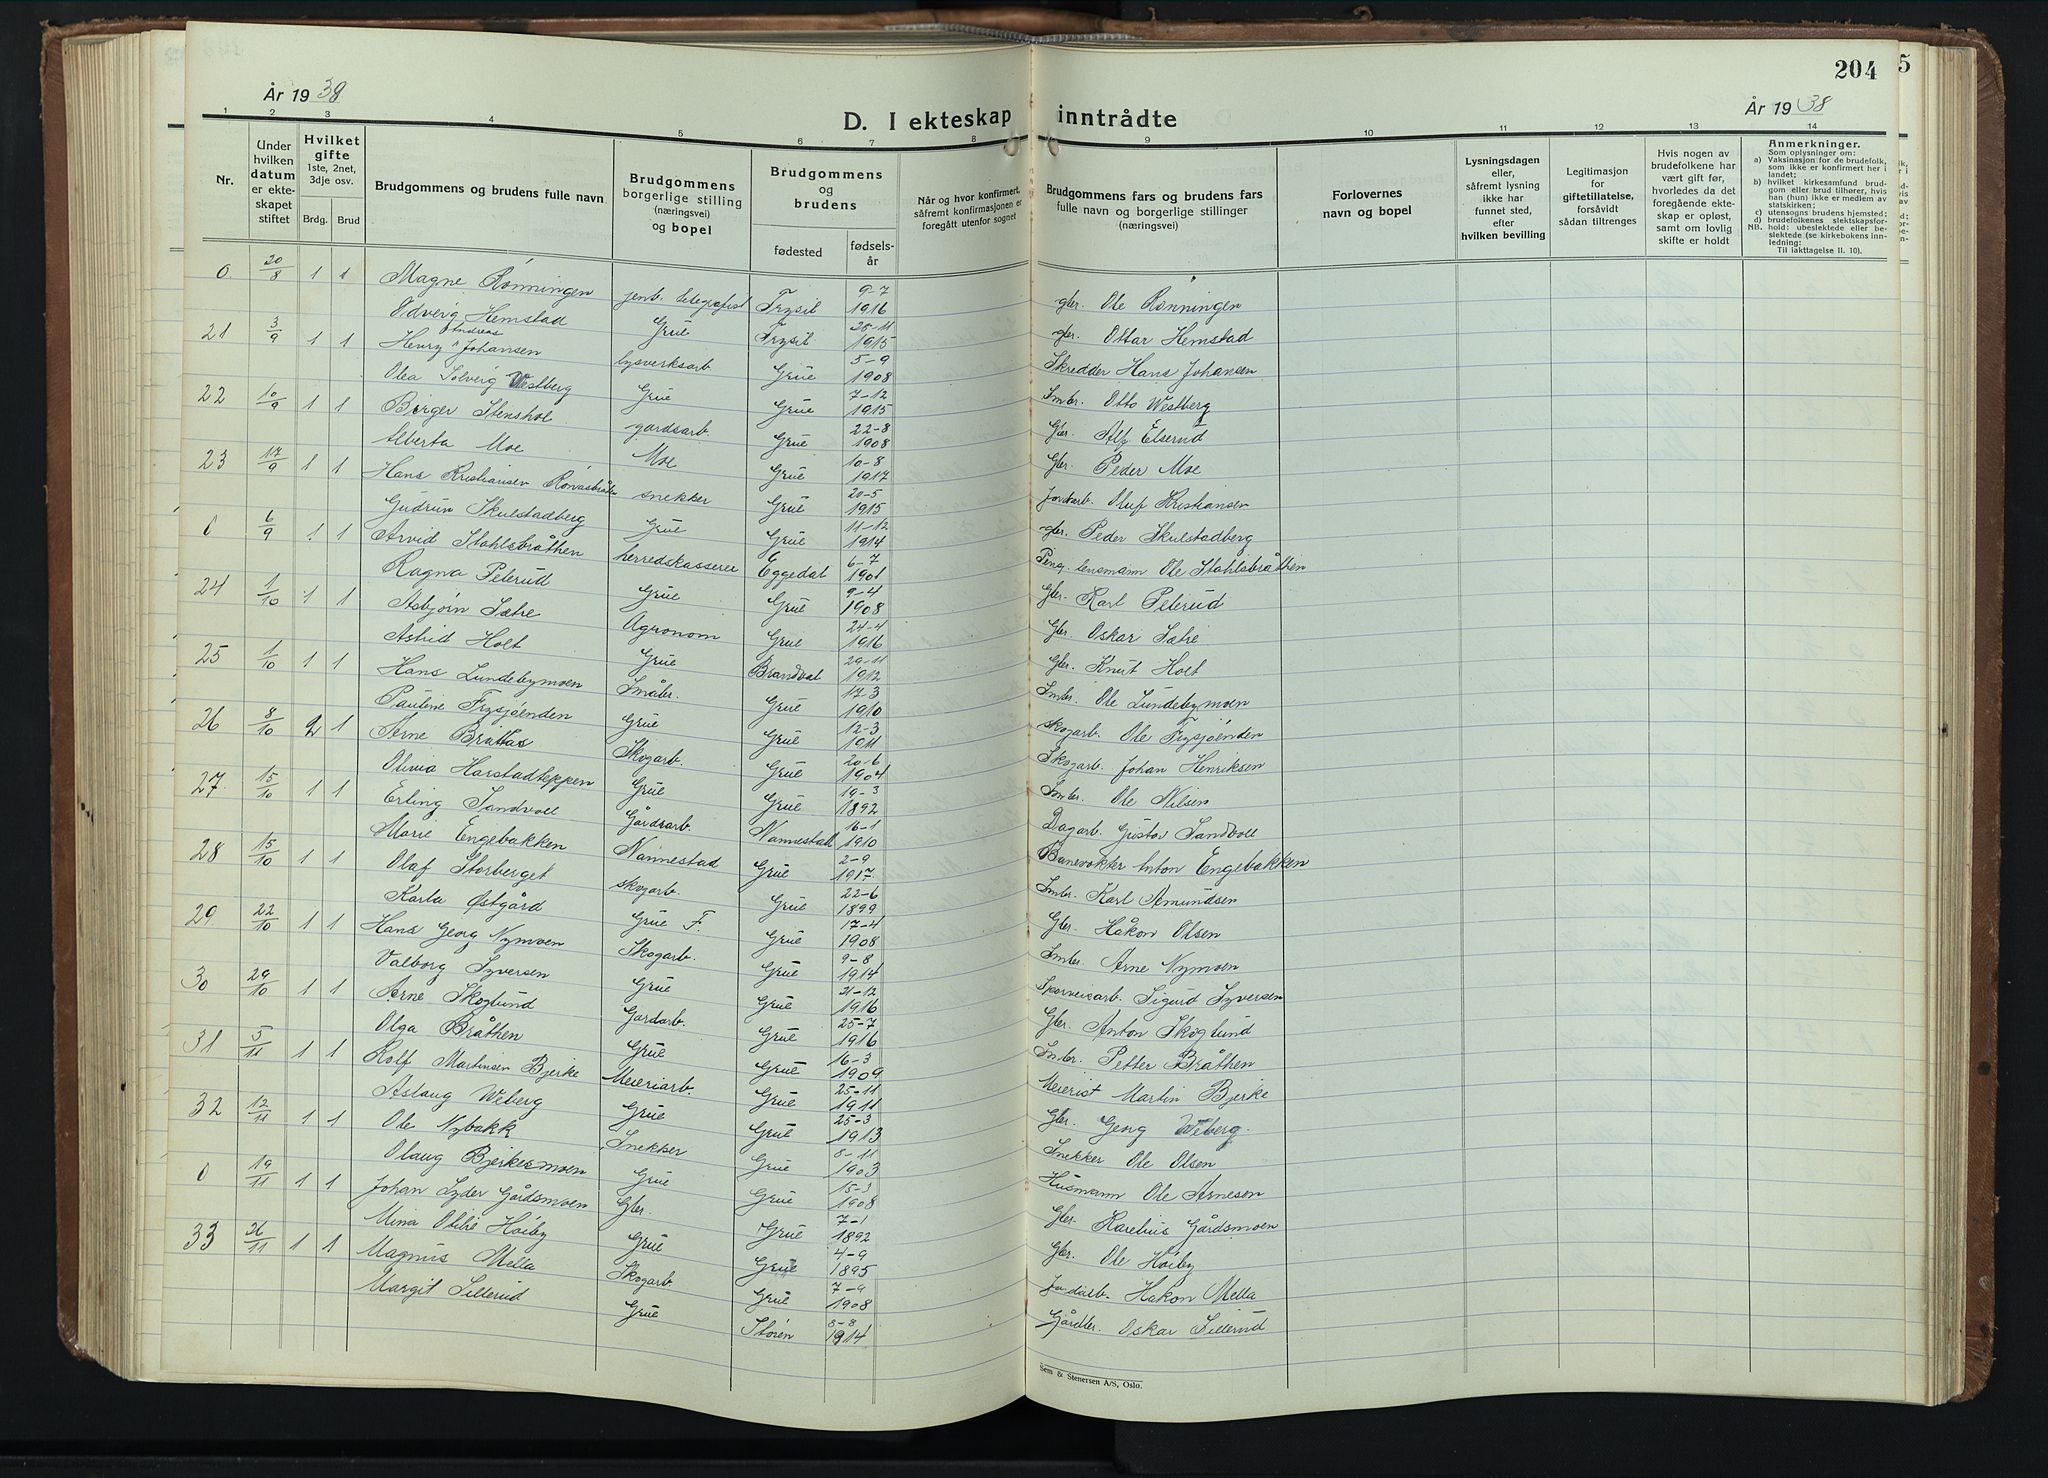 204
5
År 1938
D. I ekteskap inntrådte
År 1938
1 2 3 4 5 6 7 8 9 10 11 12 13 14
Nr.
Under hvilken datum er ekteskapet stiftet
Hvilket gifte 1ste, 2net, 3dje osv.
Brdg. Brud
Brudgommens og brudens fulle navn
Brudgommens borgerlige stilling (næringsvei) og bopel
Brudgommens og brudens
fødested
fødsels-år
Når og hvor konfirmert, såfremt konfirmasjonen er foregått utenfor sognet
Brudgommens fars og brudens fars fulle navn og borgerlige stillinger (næringsvei)
Forlovernes navn og bopel
Lysningsdagen eller, såfremt lysning ikke har funnet sted, efter hvilken bevilling
Legitimasjon for giftetillatelse, forsåvidt sådan tiltrenges
Hvis nogen av brudefolkene har vært gift før, hvorledes da det foregående ekteskap er opløst, samt om lovlig skifte er holdt
Anmerkninger.
Som oplysninger om:
a) Vaksinasjon for de brudefolk, som ikke er konfirmert her i landet;
b) hvilket kirkesamfund brudgom eller brud tilhører, hvis han (hun) ikke er medlem av statskirken;
c) utensogns brudens hjemsted;
d) brudefolkenes slektskapsforhold: ubeslektede eller beslektede (se kirkebokens innledning:
NB.
Til iakttagelse II. 10).
0 20/8 1 1 Magne Rønningen jenb. telegrafist Trysil 9-7 1916 gbr. Ole Rønningen
Odveig Hemstad Grue Trysil 25-11 1915 gbr. Ottar Hemstad
21 3/9 1 1 Henry Andreas Johansen lysverksarb Grue 5-9 1908 Skredder Hans Johansen
Olea Solveig Westberg Grue Grue 7-12 1915 Smbr. Otto Westberg
22 10/9 1 1 Birger Stenshol gårdsarb. Grue 22-8 1908 Gbr. Alf Elserud
Alberta Moe Moe Grue 10-8 1917 Gbr. Peder Moe
23 17/9 1 1 Hans Kristiansen snekker Grue 20-5 1915 Jordarb. Oluf Kristiansen
Gudrun Skulstadberg Grue Grue 11-12 1914 gbr. Peder Skulstadberg
0 6/9 1 1 Arvid Stahlsbråthen herredskasserer Eggedal 6-7 1901 Peng. lensmann Ole Stahlsbråthen
Ragna Peterud Grue Grue 9-4 1908 Gbr. Karl Peterud
24 1/10 1 1 Asbjørn Sætre Agronom Grue 24-4 1916 Gbr. Oskar Sætre
Astrid Holt Grue Brandval 29-11 1912 Gbr. Knut Holt
25 1/10 1 1 Hans Lundebymoen Småbr. Grue 17-3 1910 Smbr. Ole Lundebymoen
Pauline Frysjøenden Grue Grue 12-3 1911 skogarb. Ole Frysjøenden
26 8/10 2 1 Arne Bråttås Skogarb. Grue 20-6 1904 Skogarb. Johan Henriksen
Olivia Harstadteppen Grue Grue 19-3 1892 Smbr. Ole Nilsen
27 15/10 1 1 Erling Sandvoll Gårdsarb. Nannestad 16-1 1910 Dagarb. Gustav Sandvoll
Marie Engebakken Nannestad Grue 2-9 1917 Banevokter Anton Engebakken
28 15/10 1 1 Olaf Storberget skogarb. Grue 22-6 1899 Smbr. Karl Amundsen
Karla Østgård Grue F. Grue 17-4 1908 Gbr. Håkon Olsen
29 22/10 1 1 Hans Georg Nymoen Skogarb. Grue 9-8 1914 Smbr. Arne Nymoen
Valborg Syversen Grue Grue 21-12 1916 Sigurd Syversen
30 29/10 1 1 Arne Skoglund Gårdarb. Grue 25-7 1916 Gbr. Anton Skoglund
Olga Bråthen Grue Grue 16-3 1909 Smbr. Petter Bråthen
31 5/11 1 1 Rolf Martinsen Bjerke Meieriarb. Grue 25-11 1911 Meierist Martin Bjerke
Aslaug Weberg Grue Grue 25-3 1913 Gbr. Georg Weberg.
32 12/11 1 1 Ole Nybakk Snekker Grue 8-11 1903 Snekker Ole Olsen
Olaug Bjerkesmoen Grue Grue 15-3 1908 Husmann Ole Arnesen
0 19/11 1 1 Johan Syder Gårdsmoen Gbr. Grue 7-1 1892 Gbr. Karelius Gårdsmoen
Mina Otilie Høiby Grue Grue 4-9 1895 Gbr. Ole Høiby
33 26/11 1 1 Magnus Mella Skogarb Grue 7-9 1908 Jordarb. Håkon Mella
Margit Sillerud Grue Støren 8-8 1914 Gårdbr. Oskar Sillerud
Sem & Stenersen A/S, Oslo.